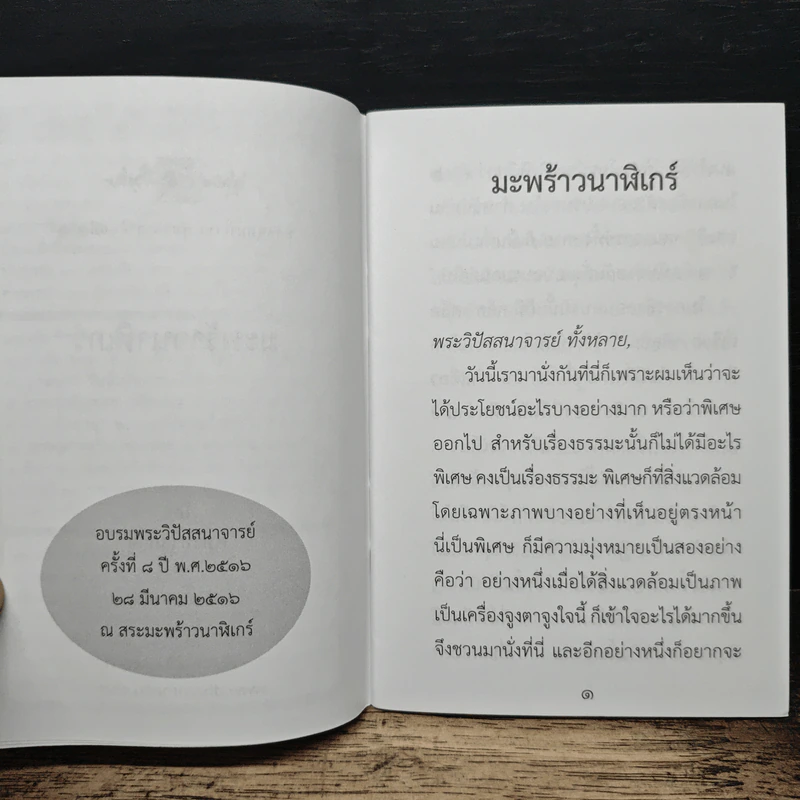 อบรมพระวิปัสสนาจารย์
ครั้งที่ ๘ ปี พ.ศ.๒๕๑๖
๒๘ มีนาคม ๒๕๑๖
ณ สระมะพร้าวนาฬิเกร์
มะพร้าวนาฬิเกร์
พระวิปัสสนาจารย์ ทั้งหลาย,
วันนี้เรามานั่งกันที่นี่ก็เพราะผมเห็นว่าจะ
ได้ประโยชน์อะไรบางอย่างมาก หรือว่าพิเศษ
ออกไป สำหรับเรื่องธรรมะนั้นก็ไม่ได้มีอะไร
พิเศษ คงเป็นเรื่องธรรมะ พิเศษก็ที่สิ่งแวดล้อม
โดยเฉพาะภาพบางอย่างที่เห็นอยู่ตรงหน้า
นี่เป็นพิเศษ ก็มีความมุ่งหมายเป็นสองอย่าง
คือว่า อย่างหนึ่งเมื่อได้สิ่งแวดล้อมเป็นภาพ
เป็นเครื่องจูงตาจูงใจนี้ ก็เข้าใจอะไรได้มากขึ้น
จึงชวนมานั่งที่นี่ และอีกอย่างหนึ่งก็อยากจะ
๑